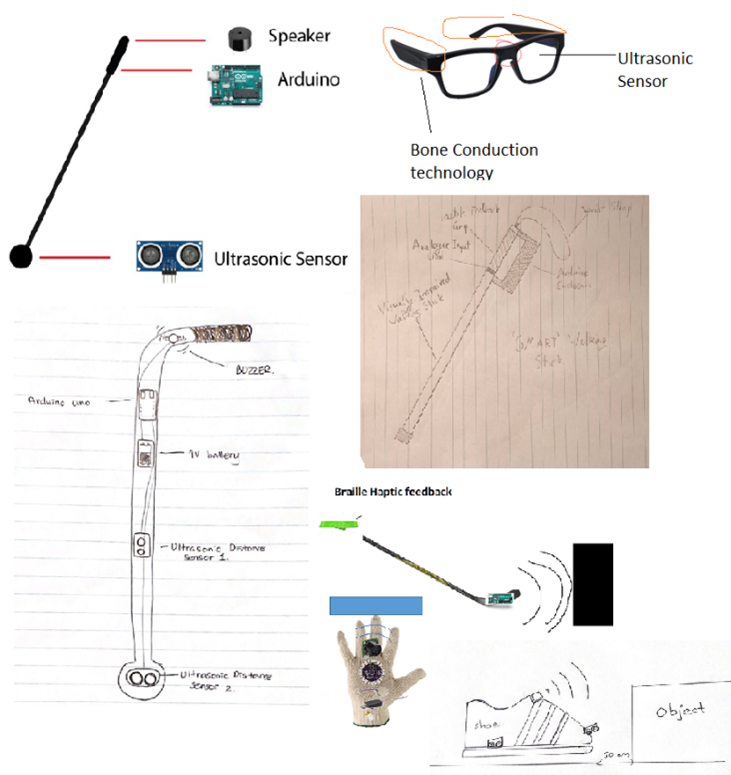 Speaker
Arduino
Ultrasonic Sensor
Ultrasonic
Sensor
Bone Conduction
technology
Analogue Input
Arduino
Visually Impaired
Walking Stick
"SMART" Walking
Stick
BUZZER.
Arduino uno
9V battery
Ultrasonic Distance
sensor 1.
Ultrasonic Distance
sensor 2.
Braille Haptic feedback
shoe
Object
30 cm